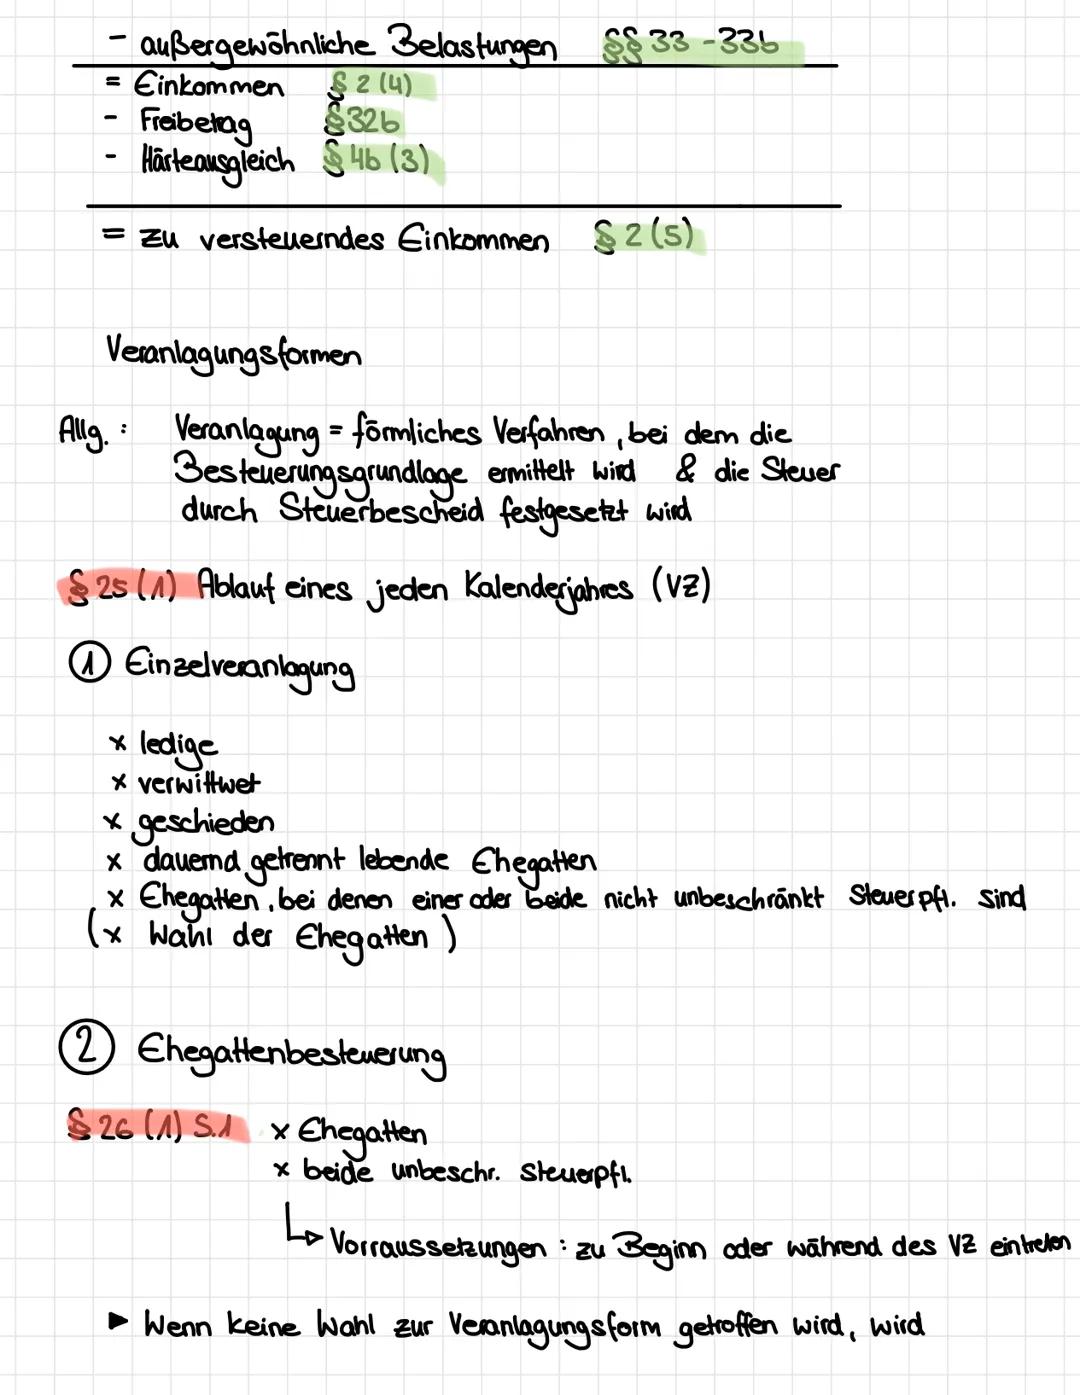 - außergewöhnliche Belastungen §§ 33 - 33b
= Einkommen § 2 (4)
- Freibetrag § 32b
- Härteausgleich § 46 (3)
= zu versteuerndes Einkommen § 2 (5)
Veranlagungsformen
Allg. : Veranlagung = förmliches Verfahren, bei dem die
Besteuerungsgrundlage ermittelt wird & die Steuer
durch Steuerbescheid festgesetzt wird
§ 25 (1) Ablauf eines jeden Kalenderjahres (VZ)
① Einzelveranlagung
x ledige
x verwittwet
x geschieden
x dauernd getrennt lebende Ehegatten
x Ehegatten, bei denen einer oder beide nicht unbeschränkt Steuerpfl. sind
(x Wahl der Ehegatten)
② Ehegattenbesteuerung
§ 26 (1) S.1 x Ehegatten
x beide unbeschr. Steuerpfl.
↳ Vorraussetzungen : zu Beginn oder während des VZ eintreten
► Wenn keine Wahl zur Veranlagungsform getroffen wird, wird